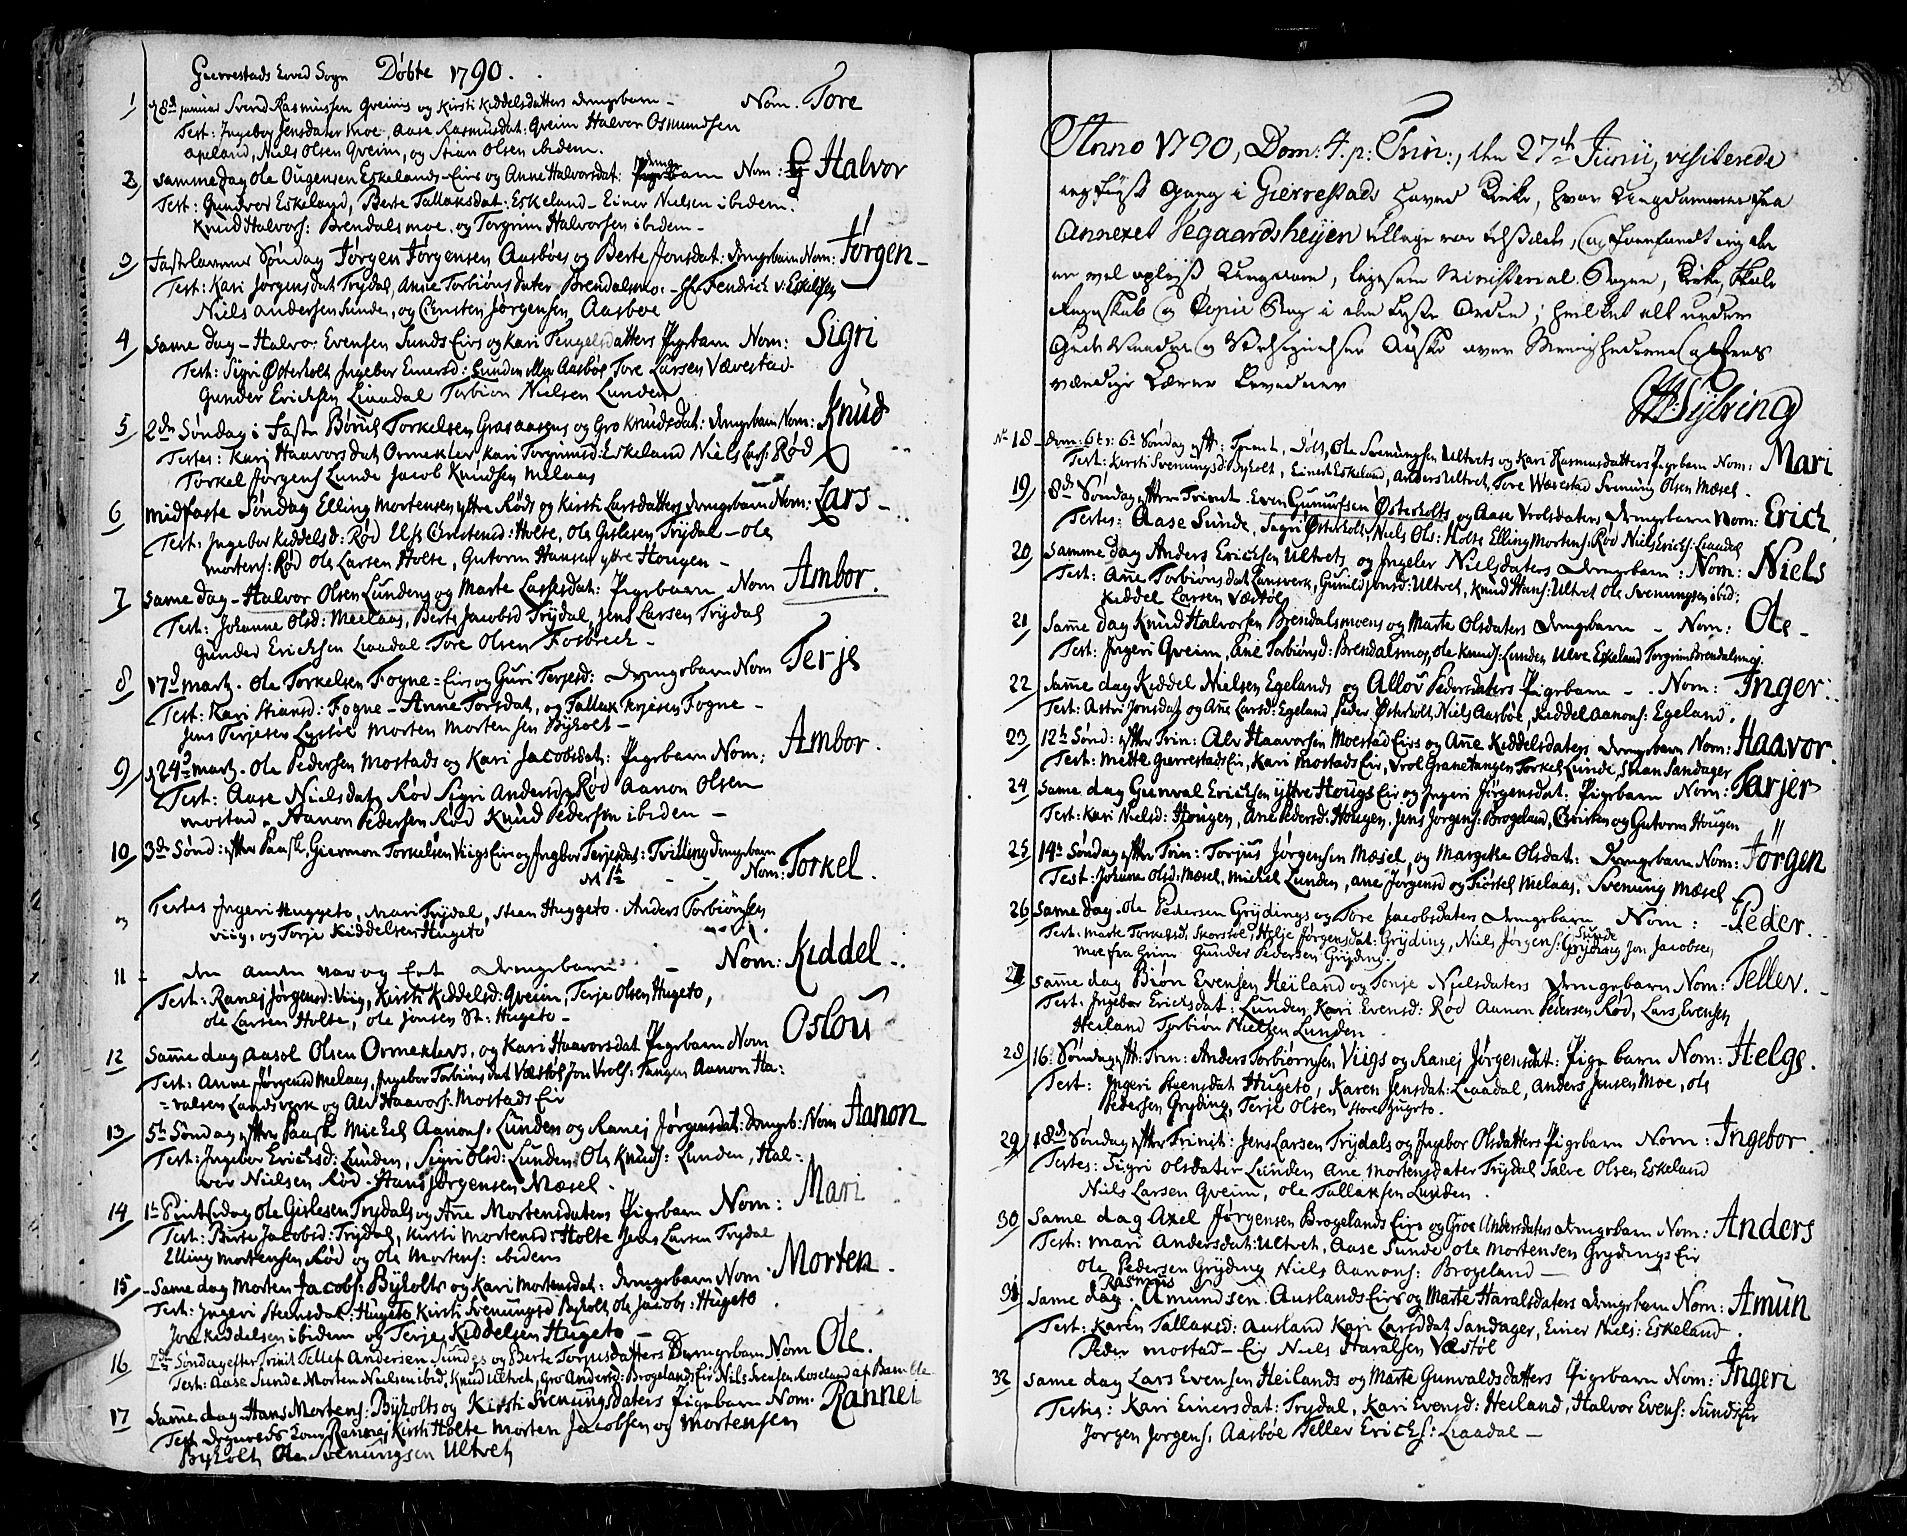 Gierrestads Hoved Sogn Døbte 1790.
1 d 8de januar Svend Rasmussen Qveims og Kirsti Kiddelsdatters drengebarn – Nom. Tore
Test: Ingebor Jensdater Moe, Aase Rasmusdat: Qveim Halvor Osmundsen
Apeland, Niels Olsen Qveim, og Stian Olsen ibidem.
2 samme dag Ole Ougensen Eskelands-Eirs og Anne Halvorsdat: drengebarn Nom: Halvor
Test: Gundvor Eskeland, Berte Tallaksdat: Eskeland – Einer Nielsen ibidem.
Knud Halvors: Brendalsmoe, og Torgrim Halvorsen ibidem –
3 Fastelavens Søndag Jørgen Jørgensen Aasbøes og Berte Jonsdat: drengebarn Nom: Jørgen –
Test: Kari Jørgensdat Trydal, Anne Torbiønsdater Brendalsmo. – Hr Fendrich v: Eskildsen
Niels Andersen Sunde, og Christen Jørgensen Aasboe
4 same dag – Halvo Evensen Sunds Eirs og Kari Tengelsdatters Pigebarn Nom: Sigri
Test: Sigri Østerholt Ingebor Einersd: Lunden Aasbøe Tore Larsen Vævestad.
Gunder Erichsen Liaadal Torbiøn Nielsen Lunden
5 2den Søndag i Faste Børuld Torkelsen Grasaasens og Gro Knudsdat: drengebarn Nom: Knud
Testes: Kari Haavorsdat Ormekler, Kari Torgrimsd: Eskeland Niels Lars: Rød
Torkel Jørgens Lunde Jacob Knudsen Melaas
6 midfaste Søndag Elling Mortensen ytre Røds og Kirsti Larsdatters drengebarn Nom: Lars –
Test: Ingebor Kiddelsd: Rød Else Christensd: Holte, Ole Gislesen Trydal – Ole
Mortens: Rød Ole Larsen Holte, Gutorm Hansen ytre Hougen –
7 same dag – Halvor Olsen Lundens og Marte Larsdat: Pigebarn Nom Ambor.
Test: Johanne Olsd: Meelaas, Berte Jacobsd Trydal, Jens Larsen Trydal
Gunder Erichsen Liaadal Tore Olsen Fosbreck –
8 17de Marty. Ole Torkelsen Fogne-Eirs og Guri Terjesd: Drengebarn Nom Terje
Test: Kari Stiansd: Fogne – Anne Torsdat, og Tallak Terjesen Fogne –
Jens Terjesen Lystøl Morten Mortensen Byholt –
9 d 24de Marty. Ole Pedersen Mostads og Kari Jacobsdat: Pigebarn Nom: Ambor.
Test: Aase Nielsdat Rød Sigri Andersd Rød Aanon Olsen
Mostad, Aanon Pedersen Rød Knud Pedersen ibidem –
10 3de Sønd: efter Paask. Giermon Torkelsen Viigs Eir og Ingbor Terjesdat: Tvilling drengebarn
No 1te – – Nom: Torkel.
Testes Ingeri Huggeto, Mari Trydal, Steen Huggeto. Anders Torbiønsen
viig, og Terje Kiddelsen Hugeto
og
11 – den anden var og Eet drengebarn – Nom: Kiddel –.
Test: Ranej Jørgensd: Viig, Kirsti Kiddelsd: Qveim, Terje Olsen Hugeto,
Ole Larsen Holte, Ole Jonsen St: Hugeto –
12 Same dag Aasol Olsen Ormeklevs, og Kari Haavorsdat Pigebarn Nom Oslou
Test: Anne Jørgensd Melaas, Ingebor Torbiønsdat Væstøl Jon Vrols: Tangen Aanon Ha-
=valsen Landsverk og Alv Haavors: Mostads Eir
13 5te Søndag efter Paask Michel Aanons: Lunden og Ranej Jørgensdat: drengeb: Nom Aanon
Test: Ingebor Erichsd: Lunden, Sigri Olsd: Lunden Ole Knuds: Lunden, Hal-
vor Nielsen Rød – Hans Jørgensen Mæsel.
14 1te Pintsedag Ole Gislesen Trydals og Ane Mortensdaters Pigebarn Nom: Mari
Test: Birte Jacobsd: Trydal, Kirsti Mortensd: Holte Jens Larsen Trydal
Elling Mortensen Rød og Ole Mortens: ibidem
15 – Same dag Morten Jacobs: Byholts og Kari Mortensdat: drengebarn Nom. Morten.
Test: Ingeri Steensdat: Hugeto, Kirsti Svenungsd Byholt, Ole Jacobs: Hugeto
Jon Kiddelsen ibidem og Terje Kiddelsen Hugeto –
16 7de Søndag efter Trinit Tellef Andersen Sundes og Berte Torjusdatters Drengebarn Nom Ole.
Test: Aase Sunde Morten Nielsen ibid, Knud Ultvet, Gro Andersd: Brogelands Eir Nils Svensen Roseland af Bamble
17 Same dag – Hans Mortens: Byholts og Kirsti Svenungsdaters Pigebarn Nom: Rannei
Test Rannej Kirsti Holte Morten Jacobsen og Mortensen
Byholt Ole Svenungsen Ultvet
38
Anno 1790, Dom: 4. p: Trin:, den 27de Junii, visiterede
ieg første Gang i Gierrestads Hoved Kirke, hvor Ungdommen fra
Annexet Vegaardsheyen tillige var tilstæde, og forefandt ieg der
en vel oplyst Ungdom, ligesom Ministerial Bogen, Kirke, Skole
Regnskab og Copie Bog i den beste Orden; hvilket alt under
Guds Naade og Velsignelse Ønske over Menighederne og dens
værdige Lærer bevidner
H: Sylsing
No 18 – Dom: 6te: 6te Søndag eft: Trinit. Døbt, Ole Svenungsen Ultvets og Kari Rasmusdatters Pigebarn Nom: Mari
Test: Kirsti Svenungsd: Byholt, Einert Eskeland, Anders Ultvet, Tore Wævestad Svenung Olsen Mæsel.
19 8de Søndag efter Trinit – Even Gunulfsen Østerholts og Aase Vrolsdaters Drengebarn Nom: Erich
Testes: Aase Sunde, Sigri Østerholt, Niels Ols: Holte Elling Mortens: Rød Niels Erichs: Liaadal
20 Samme dag Anders Erichsen Ultvets og Ingeler Nielsdaters Drengebarn: Nom: Niels
Test: Ane Torbiønsdat Lansverk, Gunild Jonsd: Ultvet, Knud Hans: Ultvet Ole Svenungsen ibid;
Kiddel Larsen Væstøl
21 Same dag Knud Halvorsen Brendalsmoens og Marte Olsdaters Drengebarn – Nom: Ole –
Test: Ingeri Qveim, Ane Torbiønsd: Brendalsmo, Ole Knuds: Lunden Ulve Eskeland Torgrim Brendalsmoj.
22 Same dag Kiddel Nielsen Egelands og Allou Pedersdaters Pigebarn – . Nom: Inger.
Test: Astri Jonsdat og Ane Larsd: Egeland Peder Østerholt, Niels Aasbøe, Kiddel Aanons: Egeland.
23 12te Sønd: efter Trin: Alv Haavorsen Moestad Eirs og Ane Kiddelsdaters drengebarn Nom: Haavor
Test: Mette Gierrestads Eir, Kari Mostads Eir, Vrol Granetangen Torkel Lunde, Stian Sandager
24 Same dag Gunval Erichsen ytre Hougs Eir og Ingeri Jørgensdat. Pigebarn Nom: Tarjer
Test: Kari Nielsd: Hougen, Ane Pedersd: Hougen, Jens Jørgens: Brogeland, Christen og Gutorm Hougen
25 14de Søndag efter Trin: Torjus Jørgensen Mæsel, og Margethe Olsdat: Drengebarn Nom: Jörgen
Test: Johane Olsd: Mæsel, Michel Lunden, Ane Jørgensd og Tiøstel Melaas, Svenung Mæsel
26 Same dag. Ole Pedersen Grydings og Tore Jacobsdaters Drengebarn Nom: – Peder.
Test: Marte Torkelsd, Skorstøl, Helje Jørgensdat: Gryding, Niels Jørgens: Sunde Jon Jacobsen
Moe fra Grim Gunder Pedersen Gryding.
27 same dag Biøn Evensen Heiland og Tonje Nielsdaters Drengebarn Nom: Tellev.
Test: Ingebor Erichsdat: Lunden, Kari Evensd: Rød Aanon Pedersen Rød, Lars Evensen
Heiland Torbiøn Nielsen Lunden.
28 16: Søndag eft: Trin: Anders Torbiørnsen Viigs og Ranej Jørgensdat: Pige barn Nom: Helge.
Test: Ingeri Steensdat Hugeto, Karen Jensdat: Liaadal, Anders Jensen Moe, Ole
Pedersen Gryding, Terje Olsen Store Hugeto.
29 18de Søndag efter Trinit: Jens Larsen Trydals og Ingebor Olsdatters Pigebarn Nom: Ingebor
Testes: Sigri Olsdater Lunden Ane Mortensdater Trydal Salve Olsen Eskeland
Niels Larsen Qveim, Ole Tallaksen Lunden.
30 Same dag Axel Jørgensen Brogelands Eirs og Groe Andersdaters Drengebarn Nom: Anders
Test: Mari Andersdat: Ultvet, Aase Sunde Ole Mortensen Grydings Eir
Ole Pedersen Gryding Niels Aanons: Brogeland –
31 Same dag. Rasmus Amundsen Auslands Eirs og Marte Haralsdaters Drengebarn Nom: Amun
Test: Karen Tallaksd: Ausland Kari Larsddat Sandager, Einer Niels: Eskeland.
Peder Mostad – Eir Niels Haralsen Væstøl
32 same dag Lars Evensen Heilands og Marte Gunvaldsdatters Pigebarn Nom: Ingeri
Testes: Kari Einersdat: Trydal, Kari Evensd: Heiland, Halvor Evens: Sunds Eir
Jørgen Jørgens. Aasbøe Tellev Erichs: Liaadal –